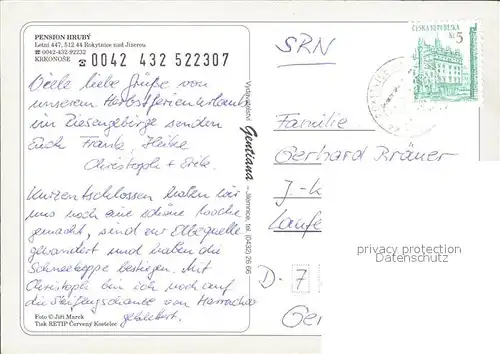 PENSION HRUBÝ
Letní 447, 512 44 Rokytnice nad Jizerou
☎ 0042-432-92232
KRKONOŠE ☎ 0042 432 522307
Viele liebe Grüße von
unserem Herbstferienurlaub
im Riesengebirge senden
Euch Frank, Heike
Christoph +
Kurzentschlossen haben wir
uns noch eine schöne Woche
gemacht, sind zur Elbequelle
gewandert und haben die
Schneekoppe bestiegen. Mit
Christoph bin ich noch auf
die Skiflugschanze von Harrachov
geklettert.
Foto © Jiří Marek
Tisk RETIP Červený Kostelec
Vydavatelství Gentiana – Jilemnice, tel. (0432) 26 66
SRN
ČESKÁ REPUBLIKA
Kč 5
Familie
Gerhard Bräuer
J.-K
Laufe
D-7
Ger
privacy protection
DatenSchutz